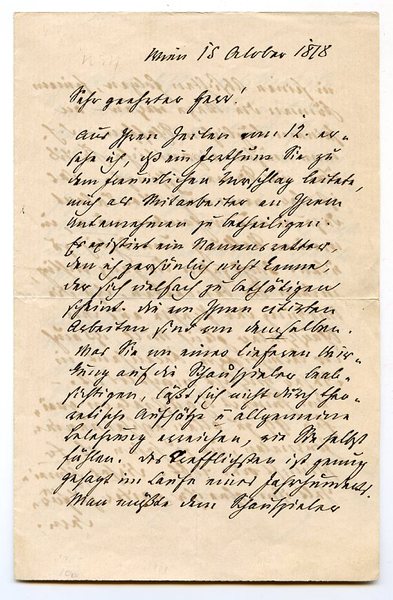 Wien 18 October 1878
Sehr geehrter Herr!
Aus Ihren Zeilen vom 12. er-
sehe ich, daß ein Irrthum Sie zu
dem freundlichen Vorschlag leitete,
mich als Mitarbeiter an Ihrem
Unternehmen zu betheiligen.
Es existirt ein Namensvetter,
den ich persönlich nicht kenne,
der sich vielfach zu bethätigen
scheint. die von Ihnen citirten
Arbeiten sind von demselben.
Was Sie von einer tieferen Wir-
kung auf die Schauspieler beab-
sichtigen, läßt sich nicht durch theo-
retische Aufsätze u allgemeine
Belehrung erreichen, wie Sie selbst
fühlen. des Trefflichsten ist genug
gesagt im Laufe eines Jahrhunderts.
Man müßte dem Schauspieler